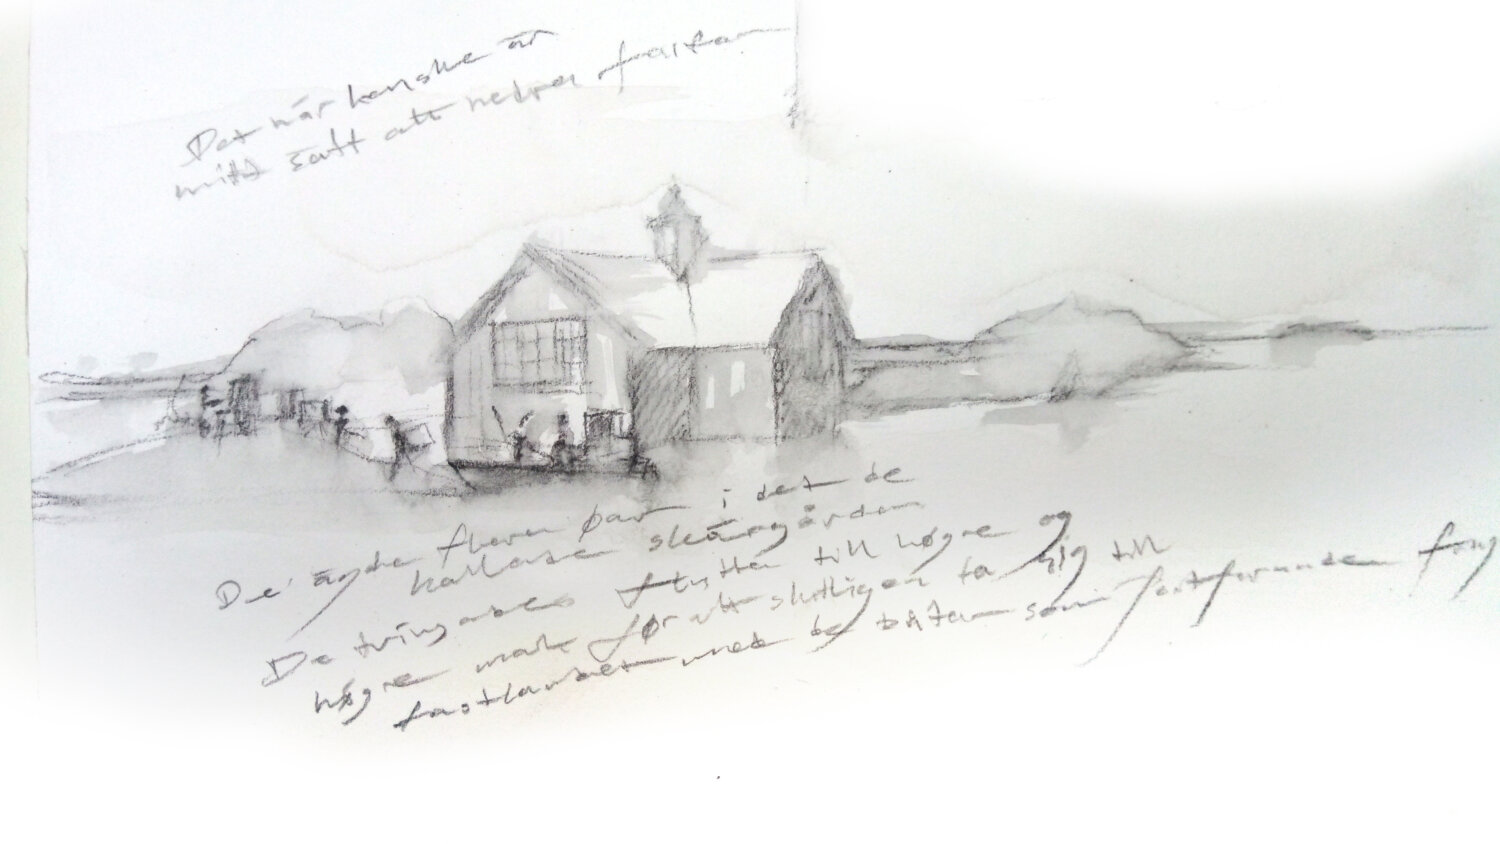 Det här kanske är
mitt sätt att hedra
De ägde flera øar i det de
kallade skärgården
De tvingades flytta till høgre og
høgre mark før att slutligen ta sig till
fastlandet med de båtar som fortfarande fung